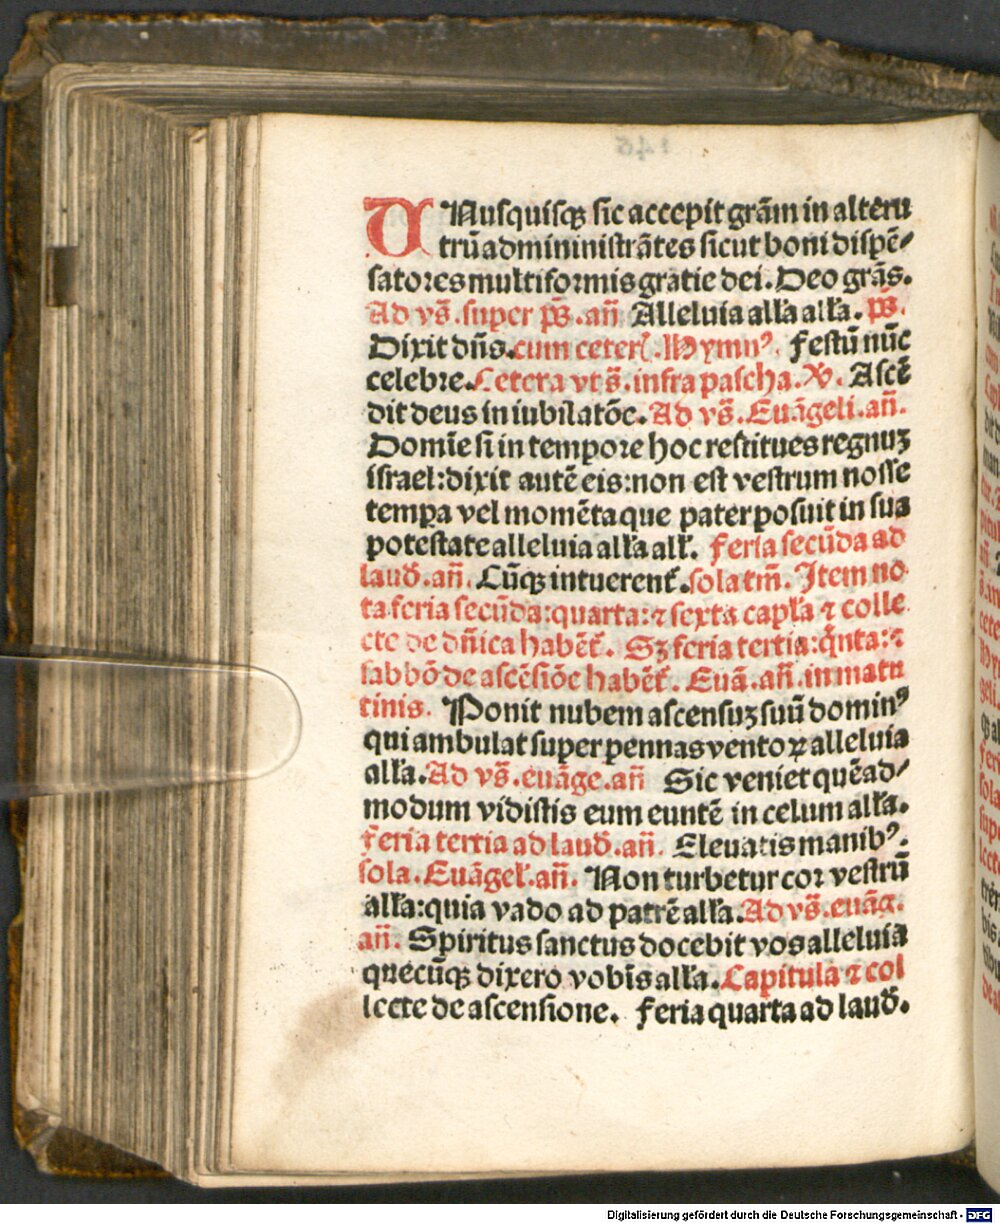 UNusquisqꝫ sic accepit grãm in alteru
trũ admininistrãtes sicut boni dispẽ⸗
satores multiformis gratie dei. Deo grãs.
Ad vs̃. super ps̃. añ Alleluia alla alla. ps̃.
Dixit dñs. cum ceter. Hymnꝰ. Festũ nũc
celebre. Cetera vt s̃. infra pascha. V. Ascẽ
dit deus in iubilatõe. Ad vs̃. Euãgeli. añ.
Domĩe si in tempore hoc restitues regnuꝫ
israel: dixit autẽ eis: non est vestrum nosse
tempa vel momẽta que pater posuit in sua
potestate alleluia alla all. Feria secũda ad
laud. añ. Cũqꝫ intuerent. sola tm̃. Item no
ta feria secũda: quarta: ⁊ sexta capla ⁊ colle
cte de dñica habẽt. Sꝫ feria tertia: qnta: ⁊
sabbõ de ascẽsiõe habẽt. Euã. añ. in matu
tinis. Ponit nubem ascensuꝫ suũ dominꝰ
qui ambulat super pennas ventoꝝ alleluia
alla. Ad vs̃. euãge. añ Sic veniet quẽad⸗
modum vidistis eum euntẽ in celum alla.
Feria tertia ad laud. añ. Eleuatis manibꝰ.
sola. Euãgel. añ. Non turbetur cor vestrũ
alla: quia vado ad patrẽ alla. Ad vs̃. euãg.
añ. Spiritus sanctus docebit vos alleluia
quecũqꝫ dixero vobis alla. Capitula ⁊ col
lecte de ascensione. Feria quarta ad laud.
Digitalisierung gefördert durch die Deutsche Forschungsgemeinschaft - DFG